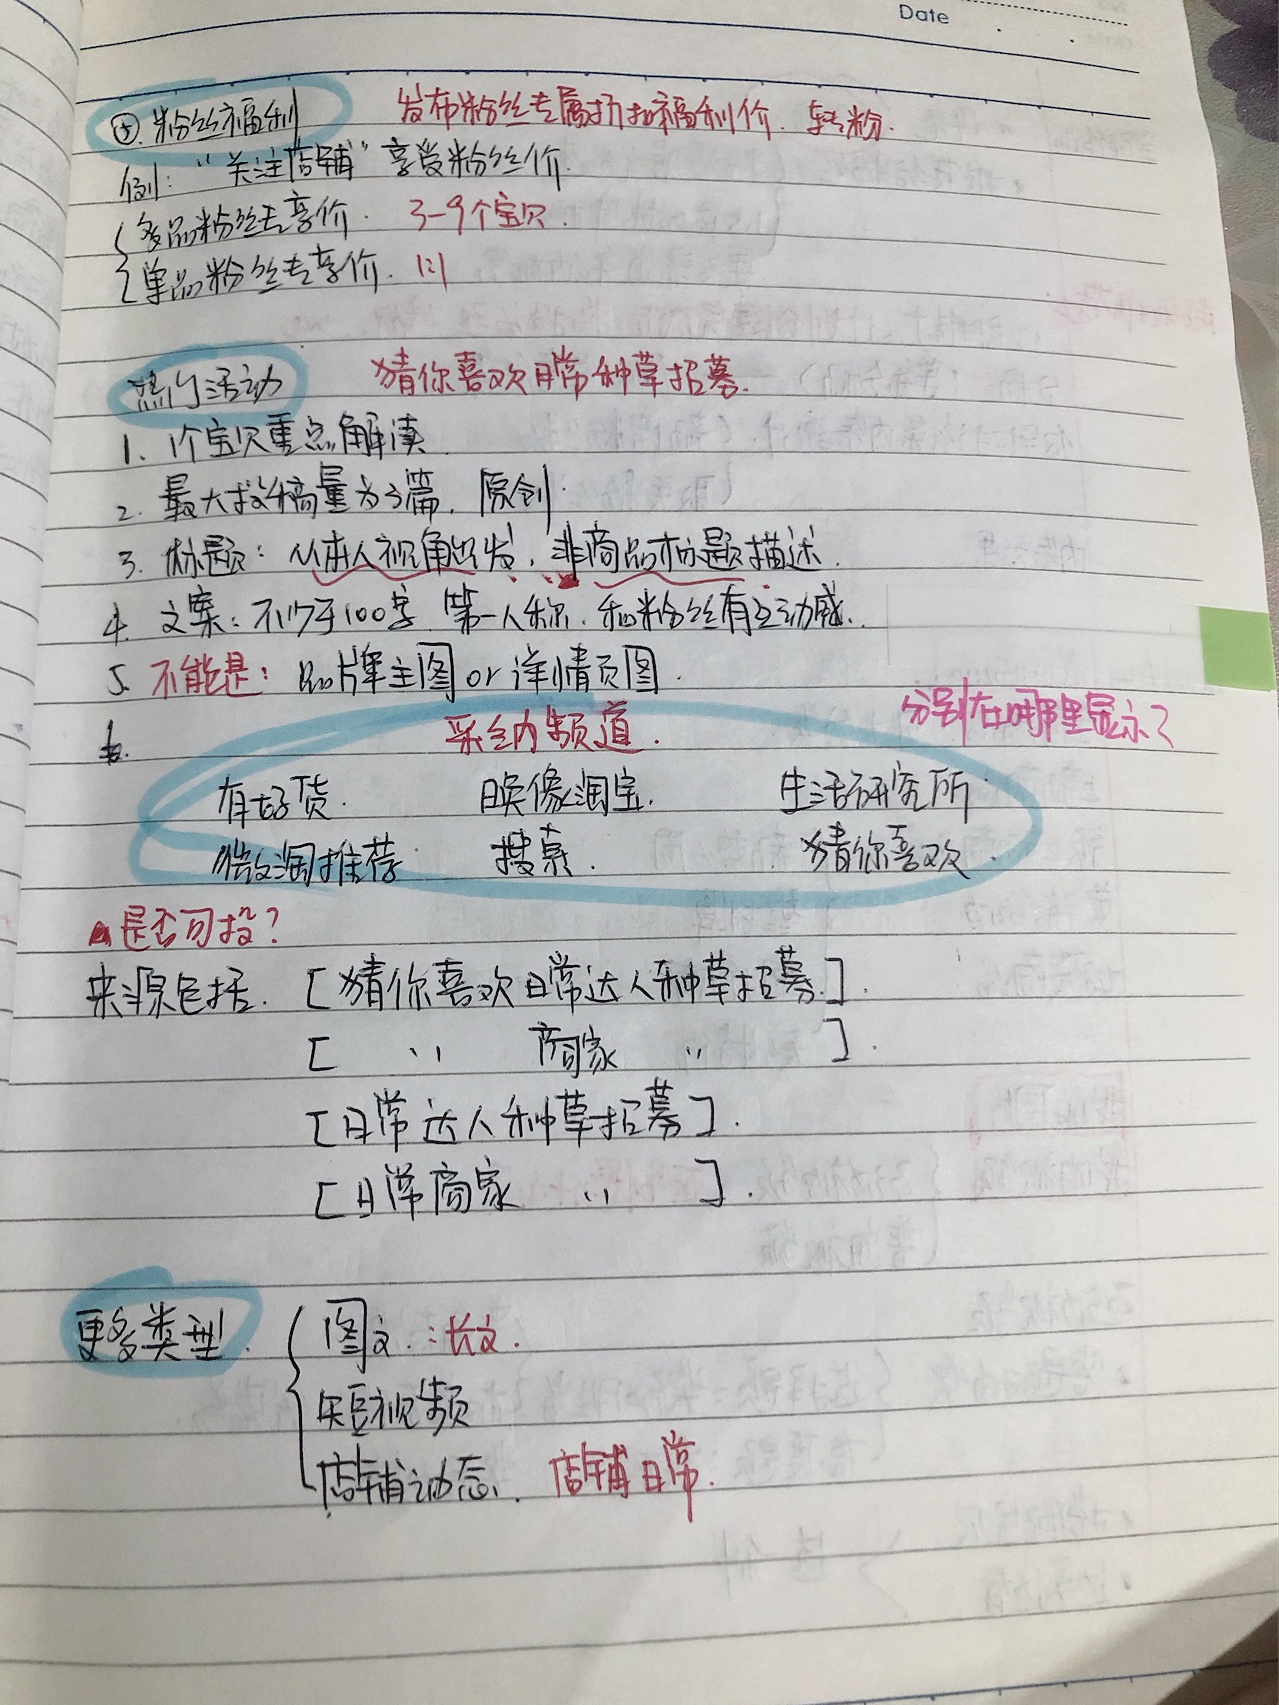 Date
⑤. 粉丝福利 发布粉丝专属折扣福利价. 转粉.
例: “关注店铺” 享受粉丝价.
多品粉丝专享价. 3-9个宝贝.
单品粉丝专享价. 1:1
热门活动 猜你喜欢日常种草招募.
1. 1个宝贝重点解读.
2. 最大投稿量为3篇. 原创.
3. 标题: 从本人视角出发, 非商品标题描述.
4. 文案: 不少于100字. 第一人称. 和粉丝有互动感.
5. 不能是: 品牌主图 or 详情页图.
分别在哪里显示?
6. 采纳频道.
有好货. 映像淘宝. 生活研究所.
微淘推荐 搜索. 猜你喜欢.
是否可投?
来源包括. [猜你喜欢日常达人种草招募].
[ 〃 商家 〃 ].
[日常达人种草招募].
[日常商家 〃 ].
更多类型. 图文. : 长文.
短视频
店铺动态. 店铺日常.